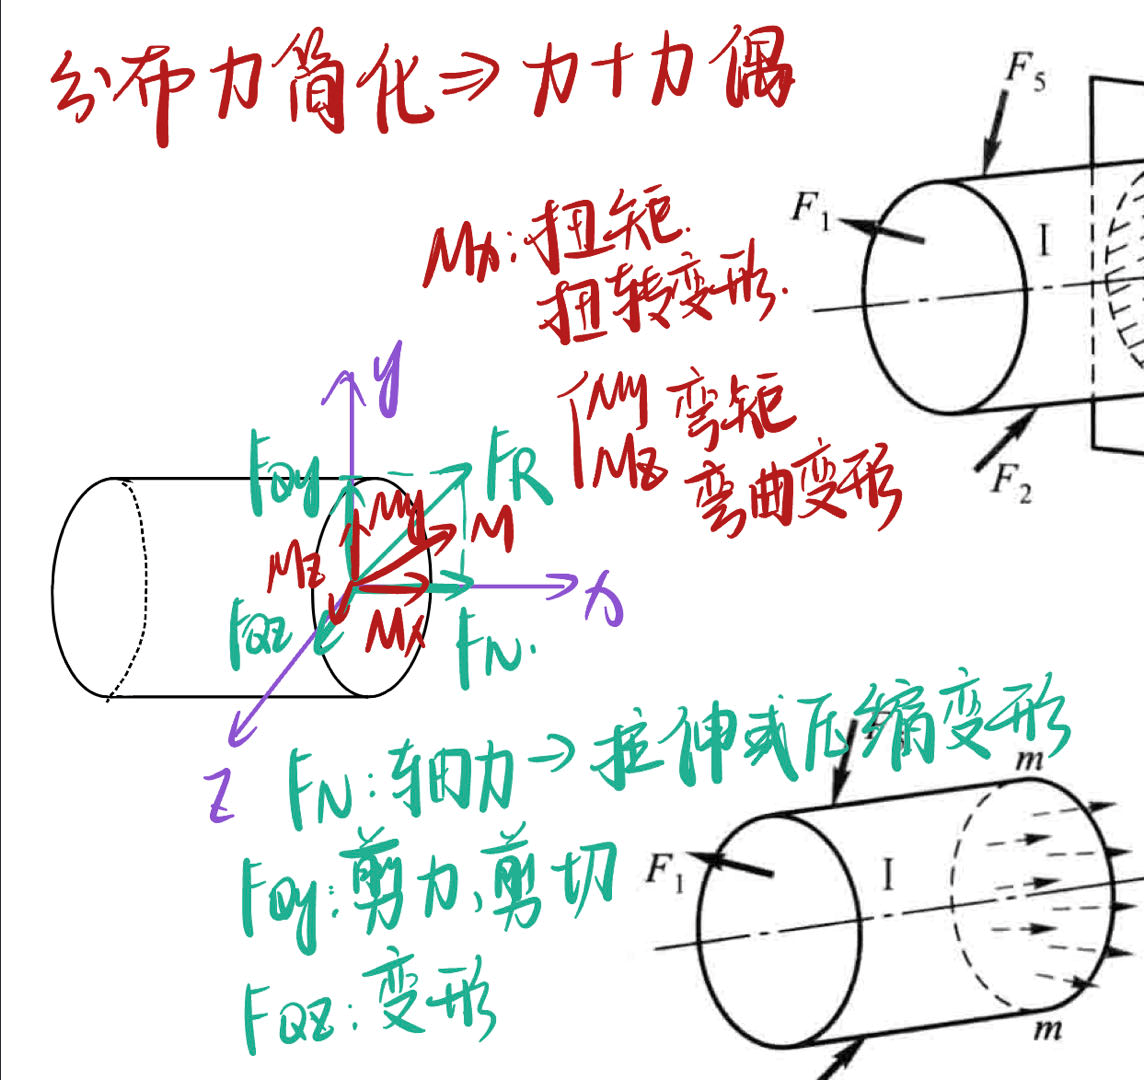 分布力简化⇒力+力偶
F5
F1
I
Mx:扭矩.
扭转变形.
My 弯矩
Mz 弯曲变形
F2
y
FQy
FR
My
M
Mz
x
FQz
Mx
FN.
z
FN:轴力→拉伸或压缩变形
m
FQy:剪力、剪切
F1
I
FQz:变形
m